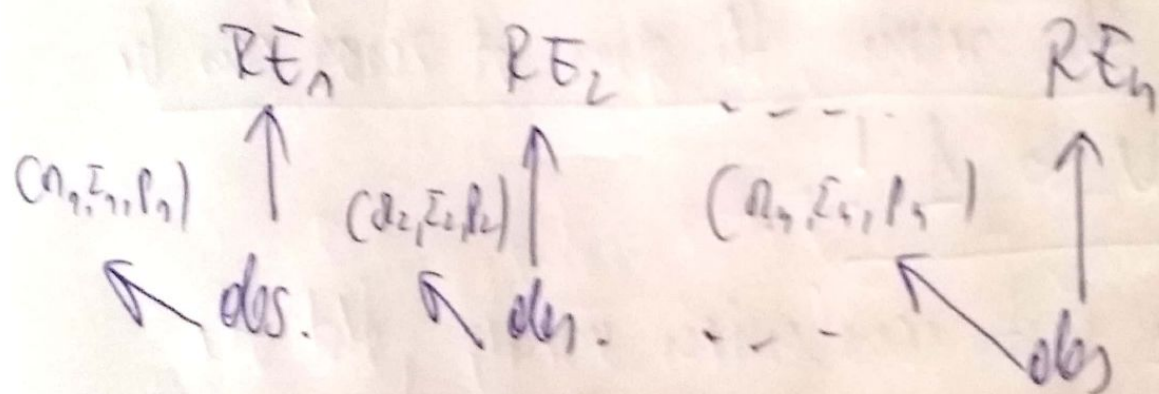 RE₁ RE₂ - - - - REₙ
(Ω₁, Σ₁, P₁) (Ω₂, Σ₂, P₂) (Ωₙ, Σₙ, Pₙ)
obs. obs. - - - obs